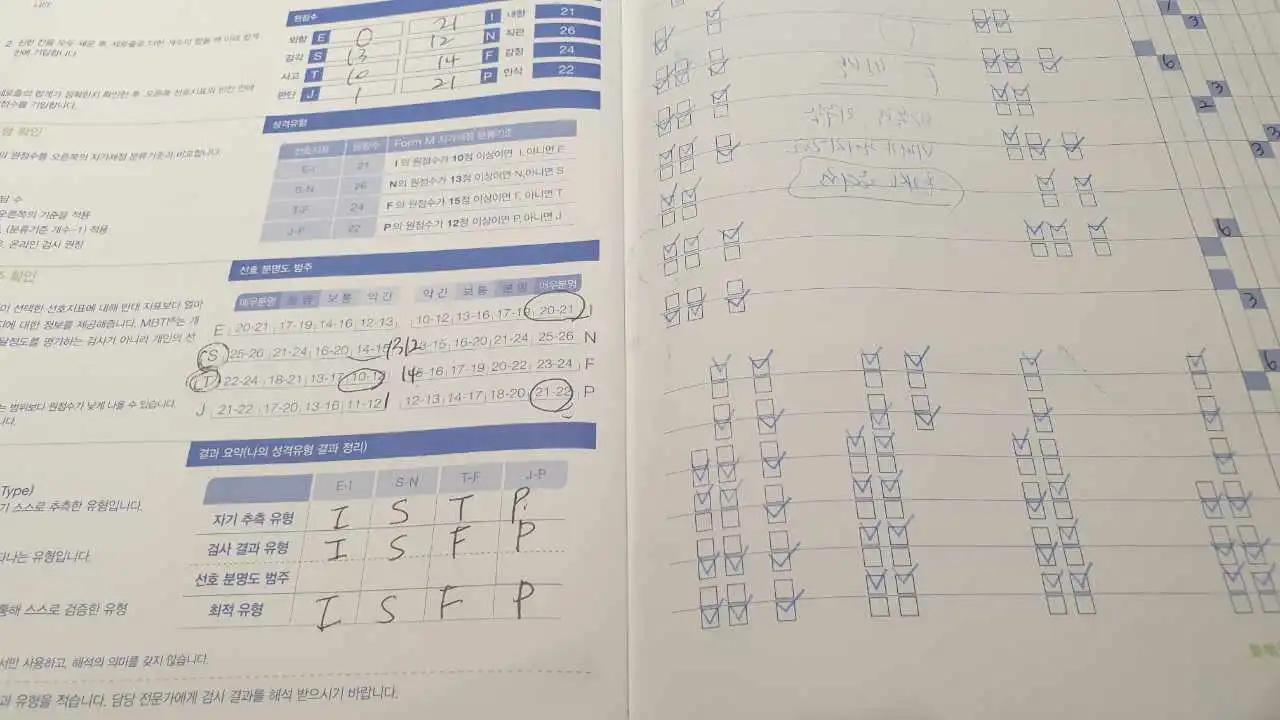 원점수
외향 E 0 21 I 내향 21
감각 S 13 12 N 직관 26
사고 T 10 14 F 감정 24
판단 J 1 21 P 인식 22
성격유형
선호지표 원점수 Form M 자가채점 분류기준
E-I 21 I 의 원점수가 10점 이상이면 I, 아니면 E
S-N 26 N의 원점수가 13점 이상이면 N, 아니면 S
T-F 24 F 의 원점수가 15점 이상이면 F, 아니면 T
J-P 22 P의 원점수가 12점 이상이면 P, 아니면 J
선호 분명도 범주
매우분명 분명 보통 약간 약간 보통 분명 매우분명
E 20-21 17-19 14-16 12-13 10-12 13-16 17-19 20-21 I
S 25-26 21-24 16-20 14-15 13 12 13-15 16-20 21-24 25-26 N
T 22-24 18-21 13-17 10-12 14 15-16 17-19 20-22 23-24 F
J 21-22 17-20 13-16 11-12 12-13 14-17 18-20 21-22 P
결과 요약(나의 성격유형 결과 정리)
E-I S-N T-F J-P
자기 추측 유형 I S T P
검사 결과 유형 I S F P
선호 분명도 범주
최적 유형 I S F P
확인
의 원점수를 오른쪽의 자가채점 분류기준과 비교합니다.
오른쪽의 기준을 적용
(분류기준 개수-1) 적용
온라인 검사 원점
확인
이 선택한 선호지표에 대해 반대 지표보다 얼마
에 대한 정보를 제공해줍니다. MBT®는 개
달정도를 평가하는 검사가 아니라 개인의 선
는 범위보다 원점수가 낮게 나올 수 있습니다.
Type)
기 스스로 추측한 유형입니다.
타나는 유형입니다.
통해 스스로 검증한 유형
서만 사용하고, 해석의 의미를 갖지 않습니다.
과 유형을 적습니다. 담당 전문가에게 검사 결과를 해석 받으시기 바랍니다.
1
3
6
3
2
3
3
6
3
6